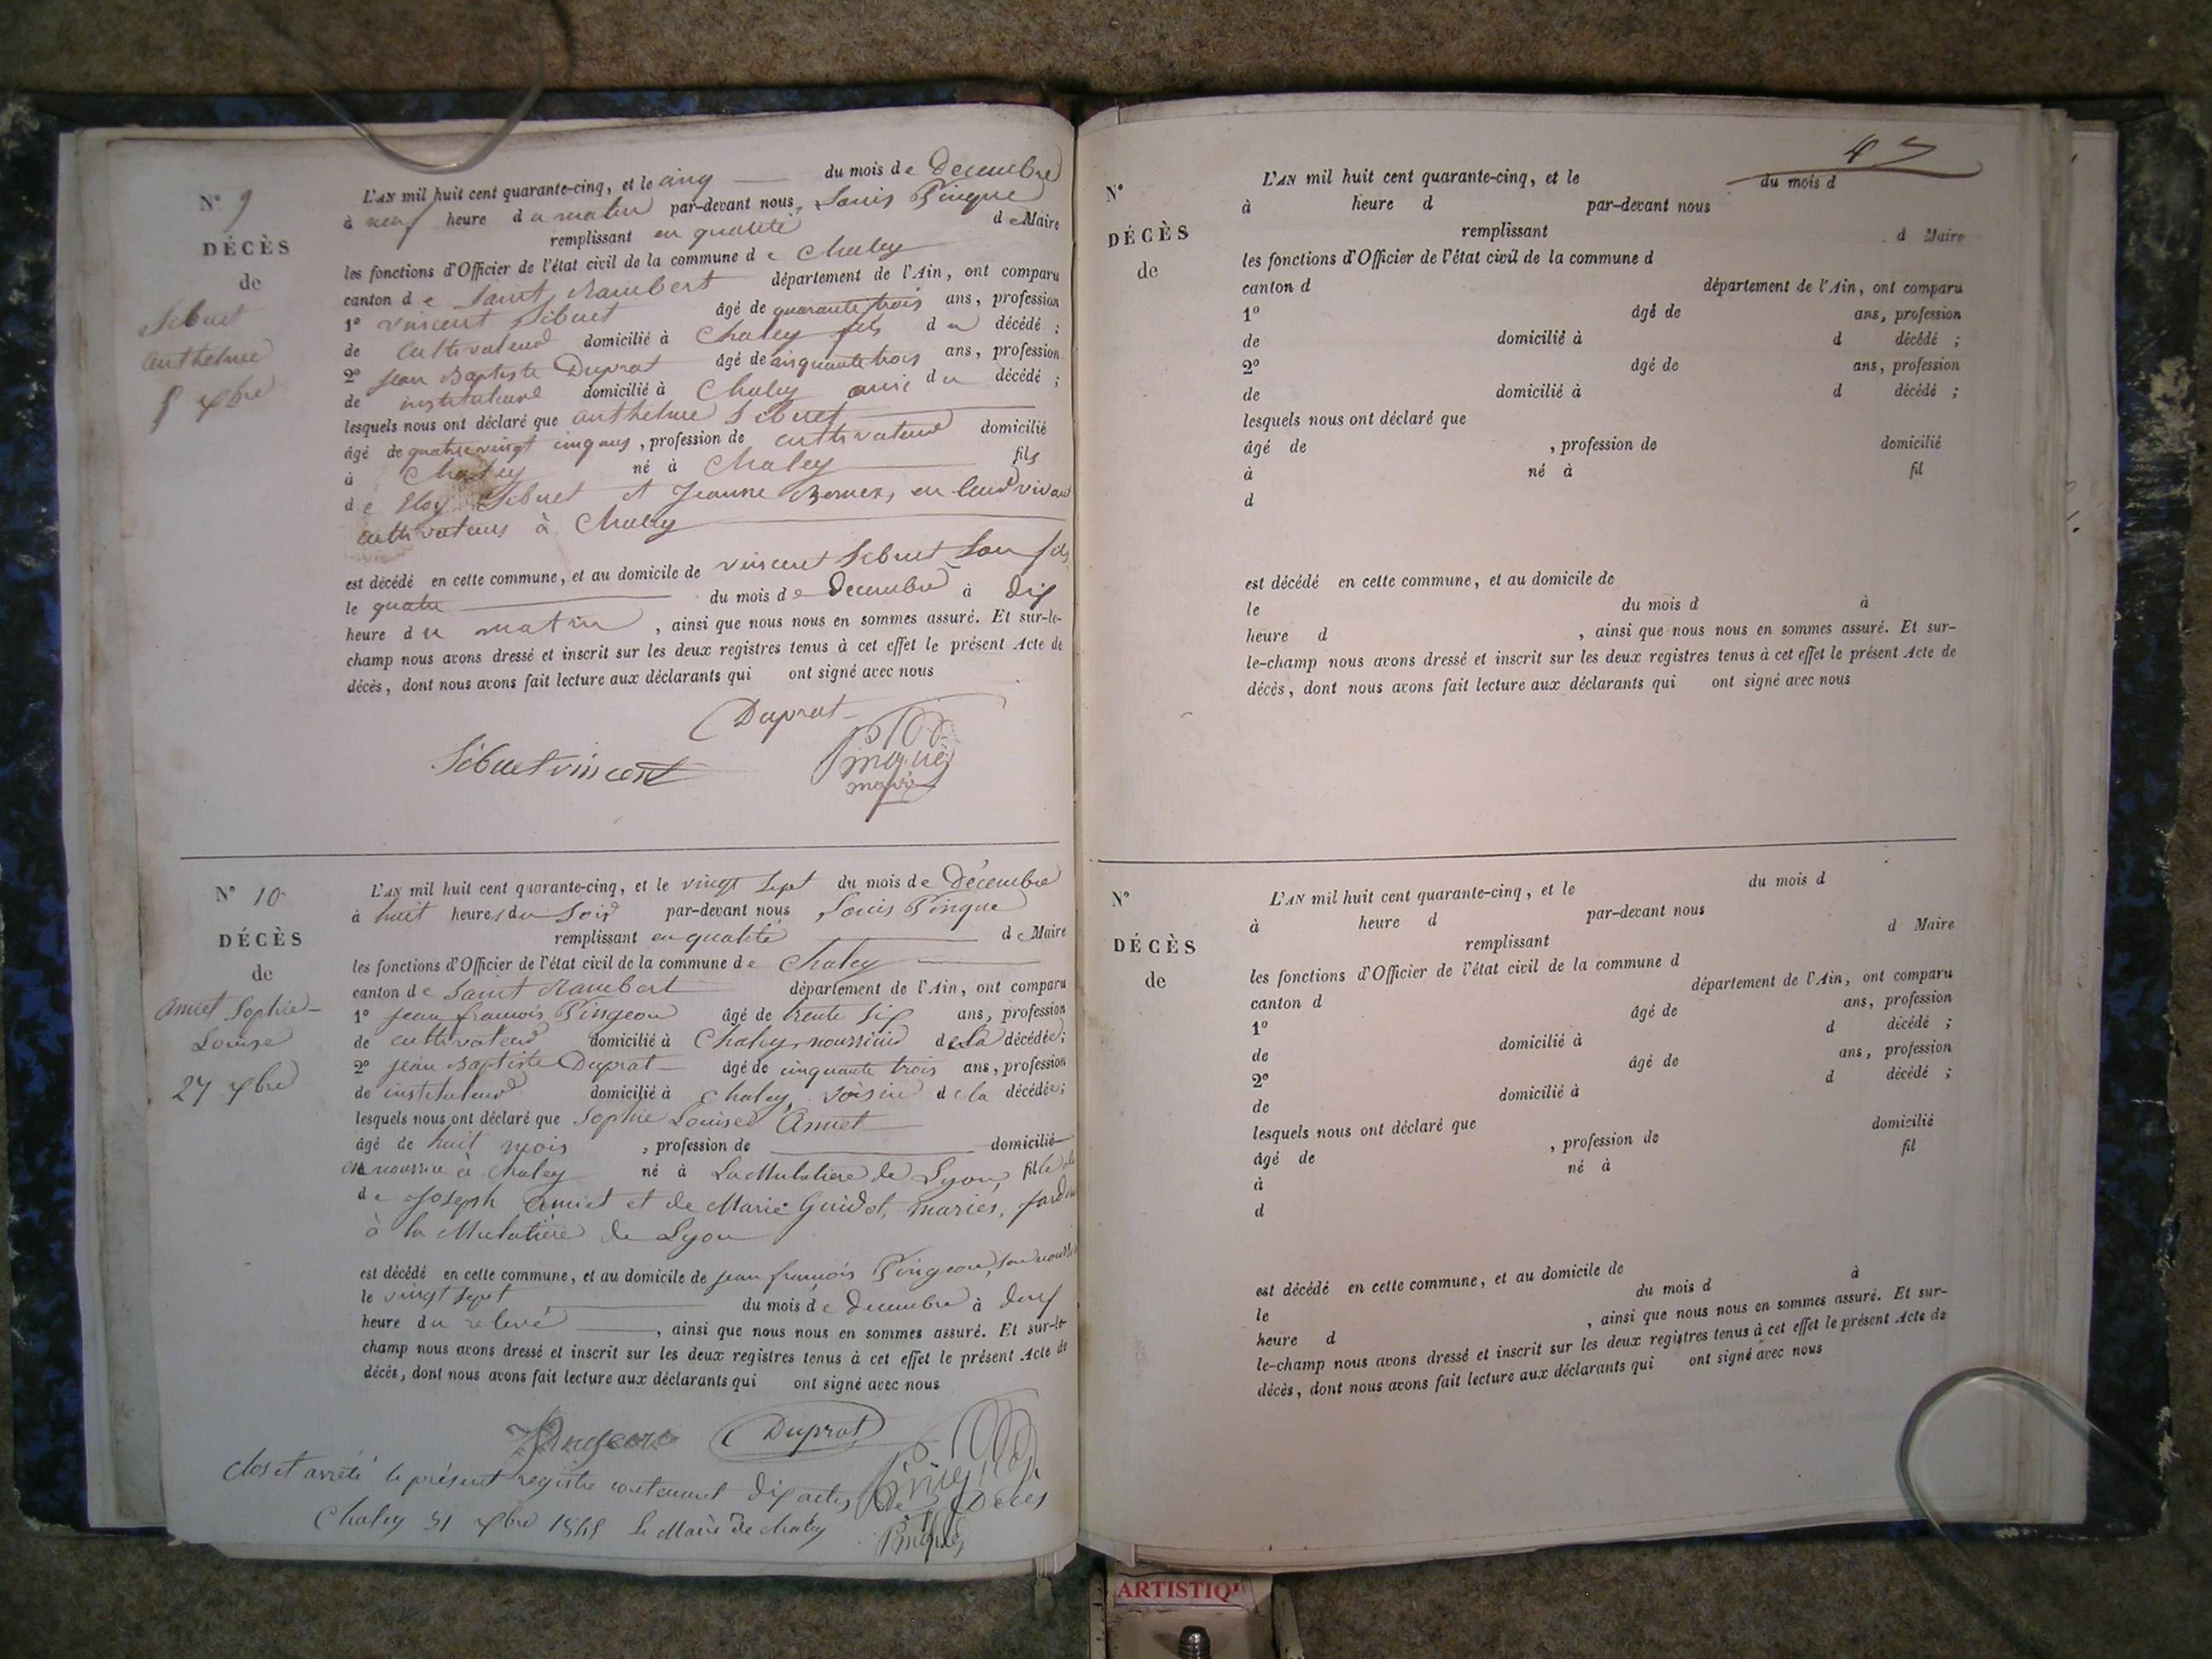 N° 9
DÉCÈS
de
Sibuet
anthelme
5 xbre
L'AN mil huit cent quarante-cinq, et le cinq du mois de Decembre
à neuf heure du matin par-devant nous, Louis Pingue
remplissant en qualité de Maire
les fonctions d'Officier de l'état civil de la commune de Chaley
canton de Saint Rambert département de l'Ain, ont comparu
1° vincent Sibuet âgé de quarante trois ans, profession
de Cultivateur domicilié à Chaley fils du décédé ;
2° Jean Baptiste Duprat âgé de cinquante trois ans, profession
de instituteur domicilié à Chaley ami du décédé ;
lesquels nous ont déclaré que anthelme Sibuet
âgé de quatre vingt cinq ans, profession de cultivateur domicilié
à Chaley né à Chaley fils
de Eloy Sibuet et Jeanne en leur vivant
cultivateurs à Chaley
est décédé en cette commune, et au domicile de vincent Sibuet son fils
le quatre du mois de Decembre à dix
heure du matin, ainsi que nous nous en sommes assuré. Et sur-le-
champ nous avons dressé et inscrit sur les deux registres tenus à cet effet le présent Acte de
décès, dont nous avons fait lecture aux déclarants qui ont signé avec nous
Duprat
Sibuet vincent
Pingue
maire
N° 10
DÉCÈS
de
Amiet Sophie-
Louise
27 xbre
L'AN mil huit cent quarante-cinq, et le vingt sept du mois de Décembre
à huit heures du Soir par-devant nous Louis Pingue
remplissant en qualité de Maire
les fonctions d'Officier de l'état civil de la commune de Chaley
canton de Saint Rambert département de l'Ain, ont comparu
1° Jean françois Pingeon âgé de trente six ans, profession
de cultivateur domicilié à Chaley, de la décédée ;
2° Jean Baptiste Duprat âgé de cinquante trois ans, profession
de instituteur domicilié à Chaley, voisin de la décédée ;
lesquels nous ont déclaré que Sophie Louise Amiet
âgé de huit mois, profession de domicilié
en nourrice à Chaley né à La Mulatiere de Lyon, fille de
de Joseph Amiet et de Marie Guidot, mariés,
à la Mulatière de Lyon
est décédé en cette commune, et au domicile de Jean françois Pingeon, son
le vingt sept du mois de decembre à deux
heure du relevé, ainsi que nous nous en sommes assuré. Et sur-le-
champ nous avons dressé et inscrit sur les deux registres tenus à cet effet le présent Acte de
décès, dont nous avons fait lecture aux déclarants qui ont signé avec nous
Pingeon Duprat Pingue
Clos et arrêté le présent registre contenant dix actes de Décès
Chaley 31 xbre 1845 Le Maire de Chaley
Pingue
47
N°
DÉCÈS
de
L'AN mil huit cent quarante-cinq, et le du mois d
à heure d par-devant nous
remplissant d Maire
les fonctions d'Officier de l'état civil de la commune d
canton d département de l'Ain, ont comparu
1° âgé de ans, profession
de domicilié à d décédé ;
2° âgé de ans, profession
de domicilié à d décédé ;
lesquels nous ont déclaré que
âgé de , profession de domicilié
à né à fil
d
est décédé en cette commune, et au domicile de
le du mois d à
heure d , ainsi que nous nous en sommes assuré. Et sur-
le-champ nous avons dressé et inscrit sur les deux registres tenus à cet effet le présent Acte de
décès, dont nous avons fait lecture aux déclarants qui ont signé avec nous
N°
DÉCÈS
de
L'AN mil huit cent quarante-cinq, et le du mois d
à heure d par-devant nous
remplissant d Maire
les fonctions d'Officier de l'état civil de la commune d
canton d département de l'Ain, ont comparu
1° âgé de ans, profession
de domicilié à d décédé ;
2° âgé de ans, profession
de domicilié à d décédé ;
lesquels nous ont déclaré que
âgé de , profession de domicilié
à né à fil
d
est décédé en cette commune, et au domicile de
le du mois d à
heure d , ainsi que nous nous en sommes assuré. Et sur-
le-champ nous avons dressé et inscrit sur les deux registres tenus à cet effet le présent Acte de
décès, dont nous avons fait lecture aux déclarants qui ont signé avec nous
ARTISTIQ